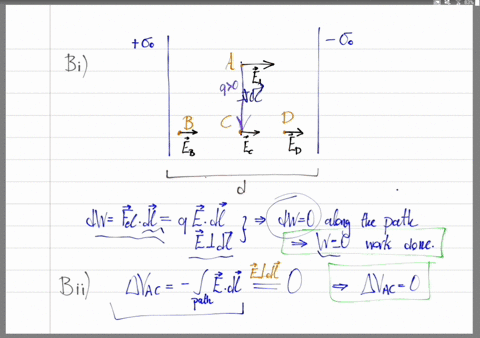 +σ₀ -σ₀
Bi) A E⃗_A
q>0 dl⃗
B C D
E⃗_B E⃗_C E⃗_D
d
dW = F⃗el · dl⃗ = q E⃗ · dl⃗ } ⇒ dW=0 along the path
E⃗ ⊥ dl⃗ ⇒ W=0 work done.
Bii) ΔV_AC = - ∫_path E⃗ · dl⃗ =^(E⃗⊥dl⃗) 0 ⇒ ΔV_AC = 0